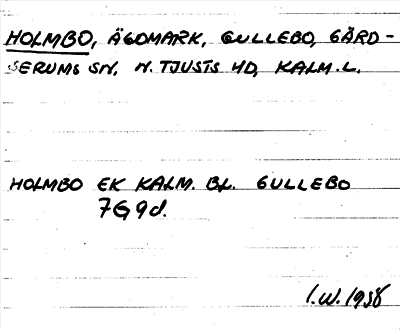 HOLMBO, ÄGOMARK, GULLEBO, GÄRD-
SERUMS SN, N. TJUSTS HD, KALM. L.
HOLMBO EK KALM. BL. GULLEBO
7G9d.
I.W. 1958